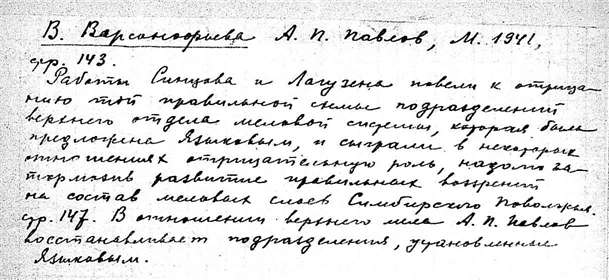 В. Варсанофьева А. П. Павлов, М. 1941,
стр. 143.
Работы Синцова и Лагузена повели к отрица-
нию той правильной схемы подразделений
верхнего отдела меловой системы, которая была
предложена Языковым, и сыграли в некоторых
отношениях отрицательную роль, надолго за-
тормозив развитие правильных воззрений
на состав меловых слоев Симбирского Поволжья.
стр. 147. В отношении верхнего мела А. П. Павлов
восстанавливает подразделения, установленные
Языковым.